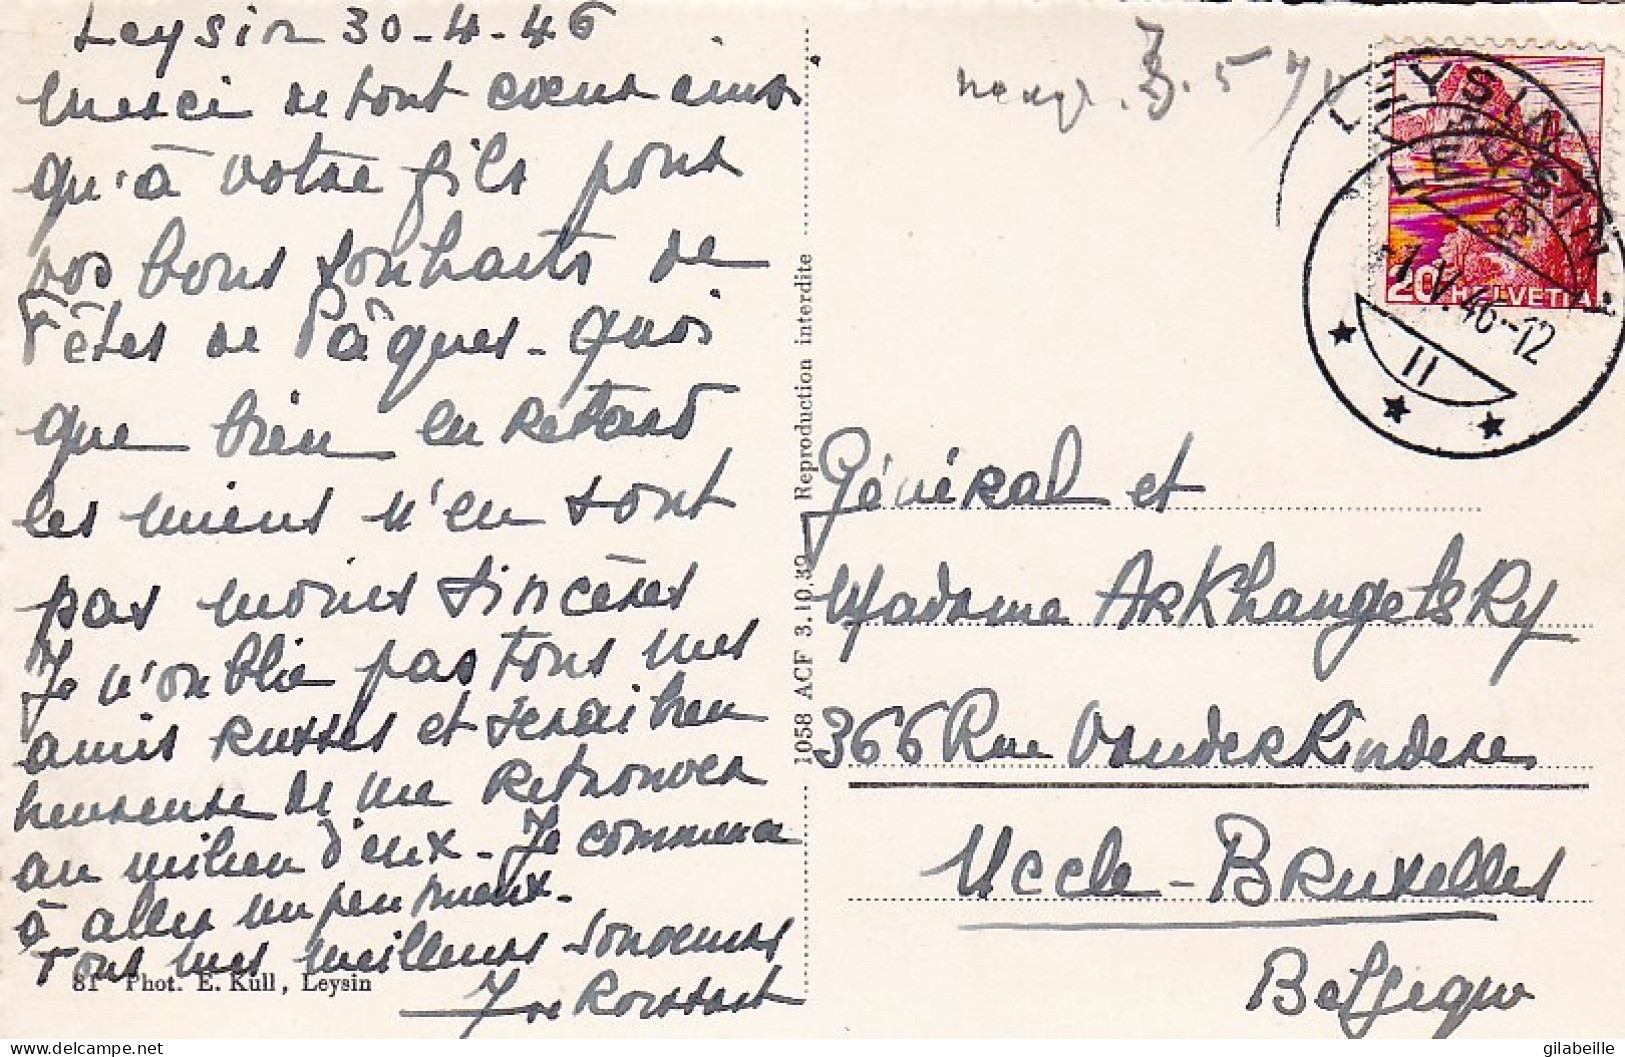 Leysin 30-4-46
Merci de tout cœur ainsi
qu'à votre fils pour
vos bons souhaits de
Fêtes de Pâques - quoi
que bien en retard
les miens n'en sont
pas moins sincères
Je n'oublie pas tous mes
amis russes et serais bien
heureuse de me retrouver
au milieu d'eux - Je commence
à aller un peu mieux -
Tous mes meilleurs
81 Phot. E. Küll, Leysin
1058 ACF 3.10.39 Reproduction interdite
LEYSIN
LEYSIN
1.V.46-12
II
20 HELVETIA
Général et
Madame Arkhangelsky
366 Rue Vanderkindere
Uccle - Bruxelles
Belgique
gilabeille
delcampe.net